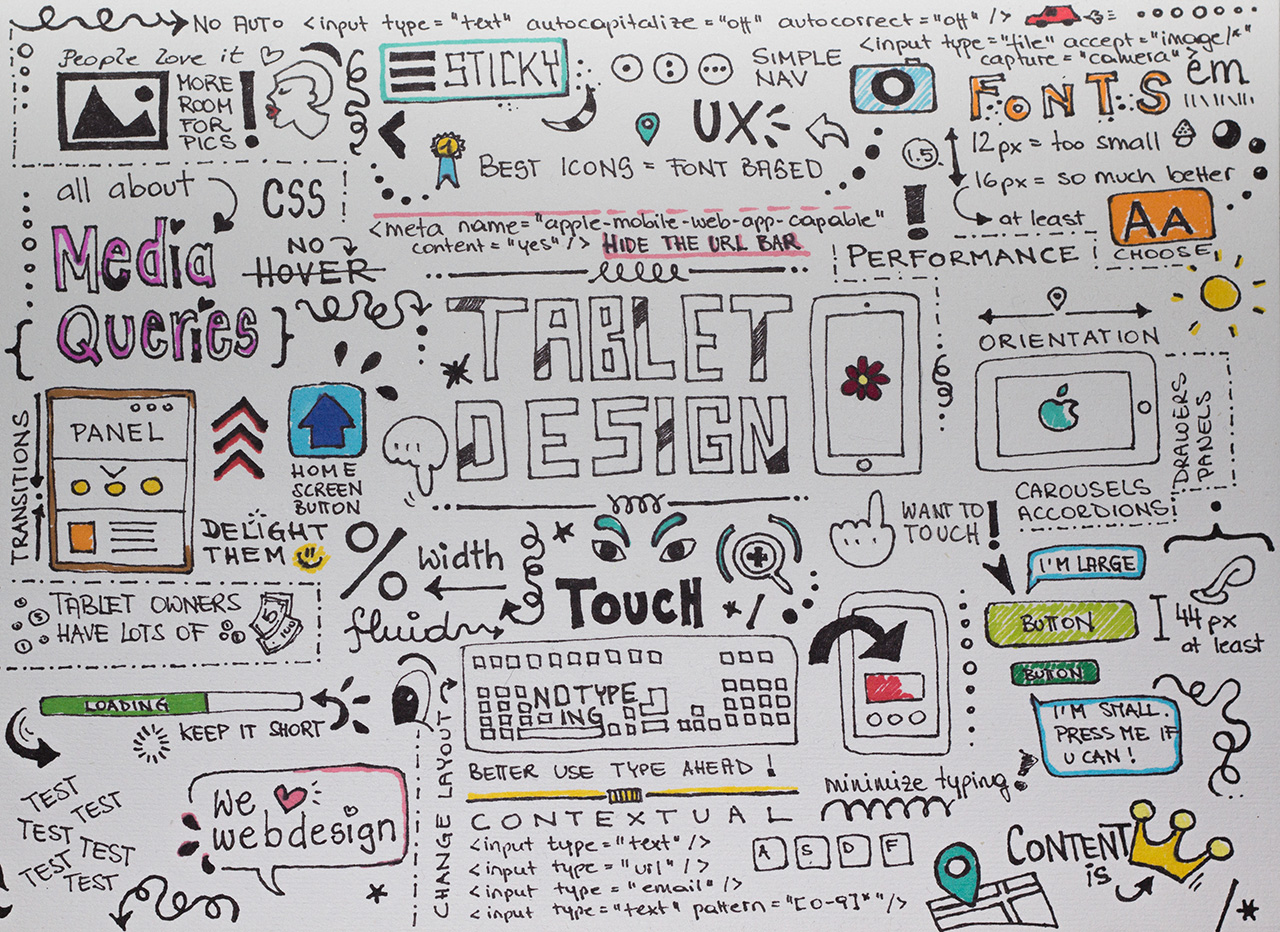 NO AUTO <input type="text" autocapitalize="off" autocorrect="off" />
People love it
MORE
ROOM
FOR
PICS
!
STICKY
SIMPLE
NAV
<input type="file" accept="image/*"
capture="camera">
FONTS
em
UX
BEST ICONS = FONT BASED
1.5
12px = too small
16px = so much better
at least
!
AA
CHOOSE
all about
CSS
Media
Queries
{ }
NO
HOVER
<meta name="apple-mobile-web-app-capable"
content="yes" />
HIDE THE URL BAR
PERFORMANCE
TABLET
DESIGN
ORIENTATION
DRAWERS
PANELS
CAROUSELS
ACCORDIONS
TRANSITIONS
PANEL
HOME
SCREEN
BUTTON
DELIGHT
THEM
%
width
fluid
TOUCH
*/
WANT TO
TOUCH!
I'M LARGE
BUTTON
44px
at least
BUTTON
I'M SMALL.
PRESS ME IF
U CAN!
TABLET OWNERS
HAVE LOTS OF
LOADING
KEEP IT SHORT
NO TYPE
ING
BETTER USE TYPE AHEAD!
minimize typing!
TEST
TEST
TEST
TEST
TEST
TEST
we
webdesign
CHANGE LAYOUT
CONTEXTUAL
<input type="text" />
<input type="url" />
<input type="email" />
<input type="text" pattern="[0-9]*"/>
A S D F
CONTENT
is
/*